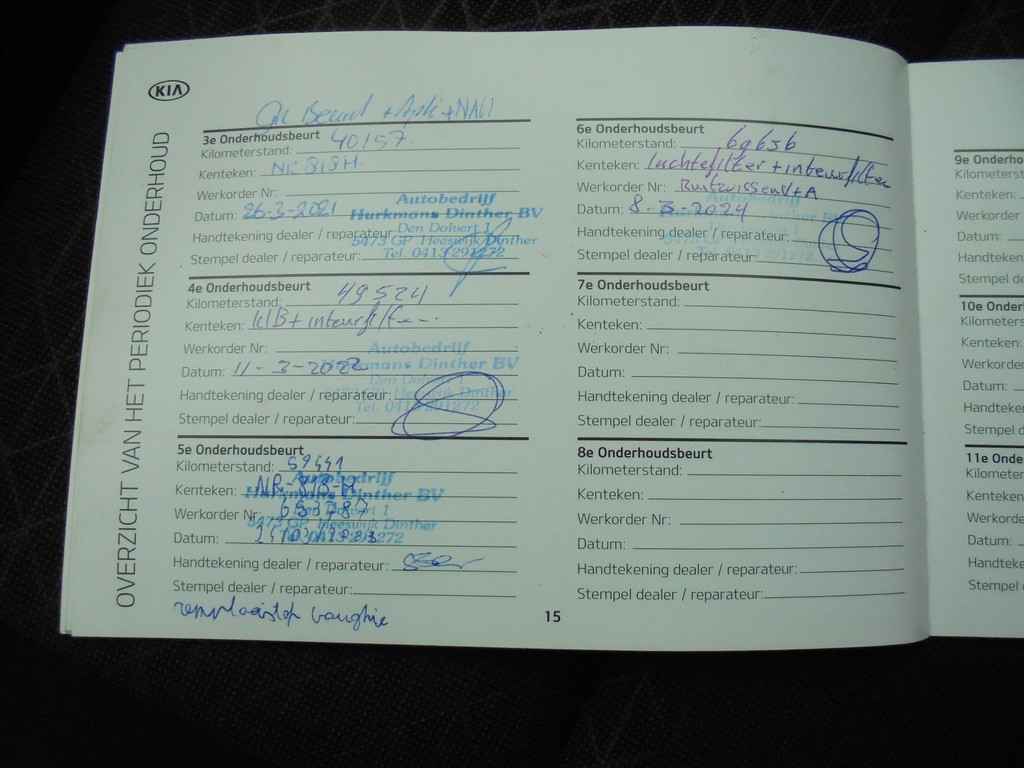 KIA
OVERZICHT VAN HET PERIODIEK ONDERHOUD
Beurt + Apk + NAVI
3e Onderhoudsbeurt
Kilometerstand: 40157.
Kenteken:
Werkorder Nr:
Datum: 26-3-2021
Handtekening dealer / reparateur:
Stempel dealer / reparateur:
Autobedrijf
Hurkmans Dinther BV
Den Dolvert 1
5473 GP Heeswijk Dinther
Tel. 0413 291272
4e Onderhoudsbeurt
Kilometerstand: 49524
Kenteken: KlB + interieurfilter
Werkorder Nr:
Datum: 11-3-2022
Handtekening dealer / reparateur:
Stempel dealer / reparateur:
Autobedrijf
Hurkmans Dinther BV
Den Dolvert 1
5473 GP Heeswijk Dinther
Tel. 0413 291272
5e Onderhoudsbeurt
Kilometerstand: 59441
Kenteken: NR-818-H
Werkorder Nr:
Datum:
Handtekening dealer / reparateur:
Stempel dealer / reparateur:
Autobedrijf
Hurkmans Dinther BV
Den Dolvert 1
5473 GP Heeswijk Dinther
Tel. 0413 291272
6e Onderhoudsbeurt
Kilometerstand: 69656
Kenteken: luchtefilter + interieurfilter
Werkorder Nr: Ruitwissers V+A
Datum: 8-3-2024
Handtekening dealer / reparateur:
Stempel dealer / reparateur:
7e Onderhoudsbeurt
Kilometerstand:
Kenteken:
Werkorder Nr:
Datum:
Handtekening dealer / reparateur:
Stempel dealer / reparateur:
8e Onderhoudsbeurt
Kilometerstand:
Kenteken:
Werkorder Nr:
Datum:
Handtekening dealer / reparateur:
Stempel dealer / reparateur:
15
9e Onderho
Kilometerstan
Kenteken:
Werkorder
Datum:
Handteken
Stempel de
10e Onder
Kilometers
Kenteken:
Werkorder
Datum:
Handteke
Stempel d
11e Onde
Kilometer
Kenteken
Werkord
Datum:
Handtek
Stempel